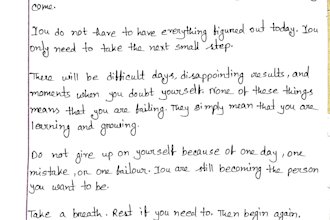 come.
You do not have to have everything figured out today. You
only need to take the next small step.
There will be difficult days, disappointing results, and
moments when you doubt yourself. None of these things
means that you are failing. They simply mean that you are
learning and growing.
Do not give up on yourself because of one day, one
mistake, or one failour. You are still becoming the person
you want to be.
Take a breath. Rest if you need to. Then begin again.